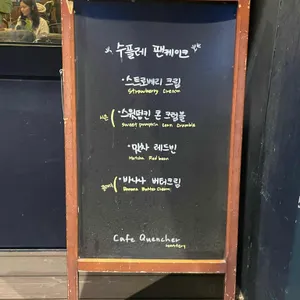 수플레 팬케이크
· 스트로베리 크림
Strawberry Cream
· 스윗펌킨 콘 크럼블
sweet pumpkin corn crumble
· 말차 레드빈
Matcha Red bean
· 바나나 버터크림
Banana Butter Cream
Cafe Quencher
roastery